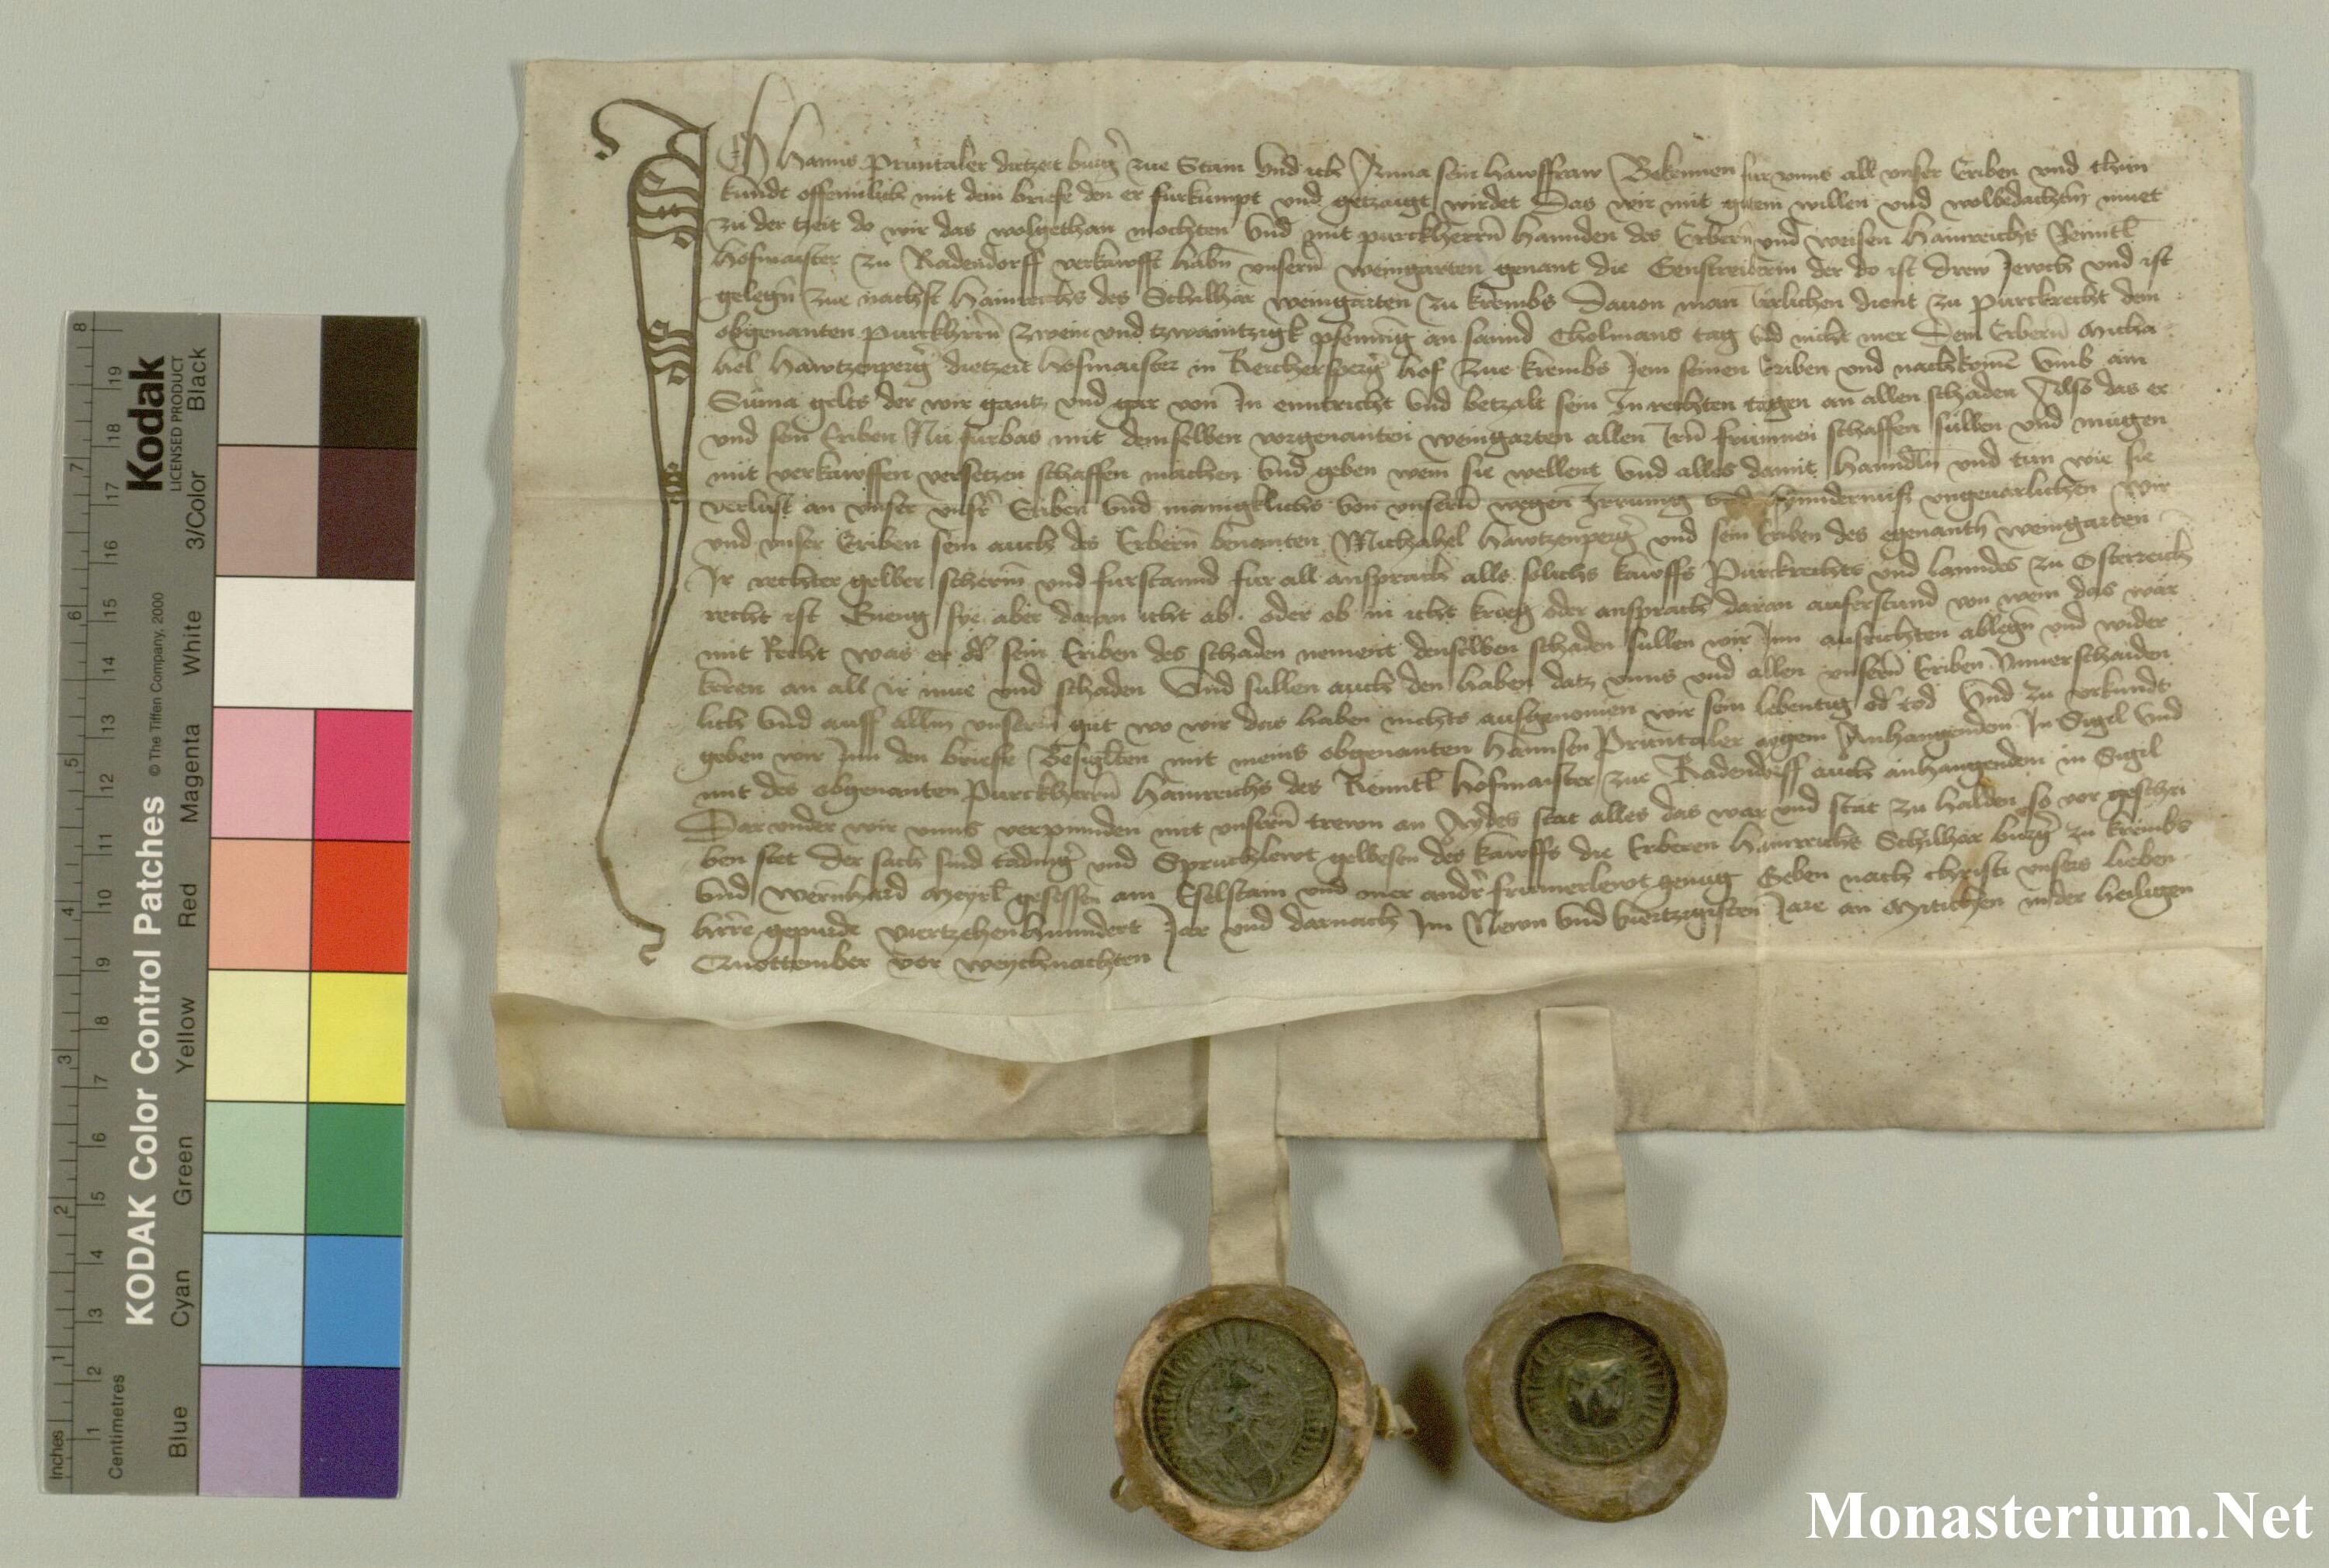 Ich Hanns Pruntaler dietzeit burg̉ zue Stain Vnd ich Anna sein hawsfraw Bekennen fur vnns all vnser Eriben vnd thün
kundt offennlich mit dem briefe den er furkumpt vnd getzaigt wirdet Das wir mit gutem willen vnd wolbedachtm̄ muet
zu der tzeit do wir das wolgethan mochten Vnd mit purckherrn̄ hannden des Erbern̄ vnd weisen Hainreichs Renntl
Hofmaister zu Radendorff verkawfft habn̄ vnsern̄ weingarten genant die der do ist drew Jewch vnd ist
gelegn̄ zue nachst Hainreichs des Schilhar weingarten zu Krembs Dauon man Jerlichen dient zu purckrecht dem
obgenanten purckherrn̄ zwein vnd tzwaintzigk pfennig an sannd Cholmans tag vnd nicht mer Dem Erbern̄ Micha
hel Hawtzenperg̉ dietzeit hofmaister in Reichersperg̉ hof zue Krembs Jem seinen Eriben vnd nachkomē Vmb ain
Suma gelts der wir gantz vnd gar von Jn enntricht Vnd betzalt sein Zu rechten tägen an allen schaden Also das er
vnd sein Eriben Nu furbas mit demselben vorgenanten weingarten allen Jrn̄ frummen schaffen sullen vnd mugen
mit verkawffen versetzen schaffen machen Vnd geben wem sie wellent Vnd alles damit hanndln̄ vnd tün wie sie
verlust an vnser vnsr̉ Eriben Vnd manigklichs von vnsern̄ wegen Jrrunng vnd hynndernuß vngeuerlichen wir
vnd vnser Eriben sein auch des Erbern̄ benanten Michahel Hawtzenperg̉ vnd sein Eriben des egenantn̄ weingarten
Jr rechter gelber scherm̄ vnd furstannd fur all ansprach alls solichs kawffs Purckrechts vnd lanndes zu Osterreich
recht ist Gieng sye aber daran icht ab. oder ob in icht krieg oder ansprach daran auferstund von wem das wär
mit Recht was er od̉ sein Eriben des schaden nement denselben schaden sullen wir Jnn ausrichten ablegn̄ vnd wider
keren an all ir mue vnd schaden Vnd sullen auch den haben datz vnns vnd allen vnsern̄ Eriben Vnuerschaiden
lich Vnd auff allm̄ vnserm̄ gut wo wir das haben nichts ausgenomen wir sein lebentig od̉ tod Vnd zu vrkundt
geben wir Jnn den briefe Besiglten mit meins obgenanten Hannsen Pruntaler aigem Anhangenden Jn Sigel Vnd
mit des obgenanten Purckherrn̄ Hainreichs des Renntl Hofmaister zue Radendorff auch anhangendem in Sigil
Dar vnder wir vnns verpinnden mit vnsern̄ trewn an Aydes stat alles das war vnd stät zu halden so vor geschri
ben stet Der sach sind tading̉ vnd Spruchlewt gewesen des kawffs die Erberen Hainreichs Schilhar burg̉ zu Krembs
Vnd Wernhard Meyrl gesessen am Eselstain vnd mer andr̉ frumerlewt genug Geben nach Christi vnsers lieben
hrrē gepurde viertzehenhunndert Jar vnd darnach Jm Newn Vnd viertzigisten Jare an Mitichen in der heiligen
Quottember vor weychnachten
KODAK Color Control Patches
© The Tiffen Company, 2000
Kodak
LICENSED PRODUCT
Inches
Centimetres
Blue
Cyan
Green
Yellow
Red
Magenta
White
3/Color
Black
1 2 3 4 5 6 7 8
1 2 3 4 5 6 7 8 9 10 11 12 13 14 15 16 17 18 19
Monasterium.Net